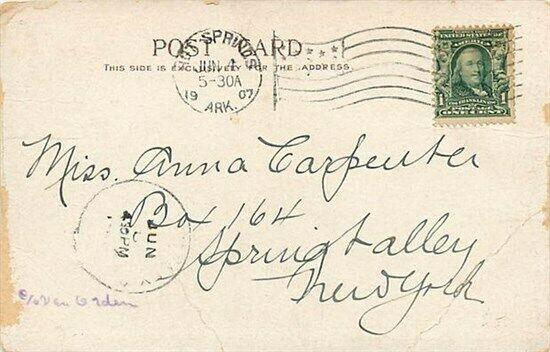 POST CARD
THIS SIDE IS EXCLUSIVELY FOR THE ADDRESS
HOT SPRINGS
JUN 1
5-30A
1907
ARK.
UNITED STATES OF
1 1
FRANKLIN
POSTAGE
ONE CENT
Miss. Anna Carpenter
Box 164
Spring Valley
New York
JUN
430PM
N.Y.
c/o Van Orden